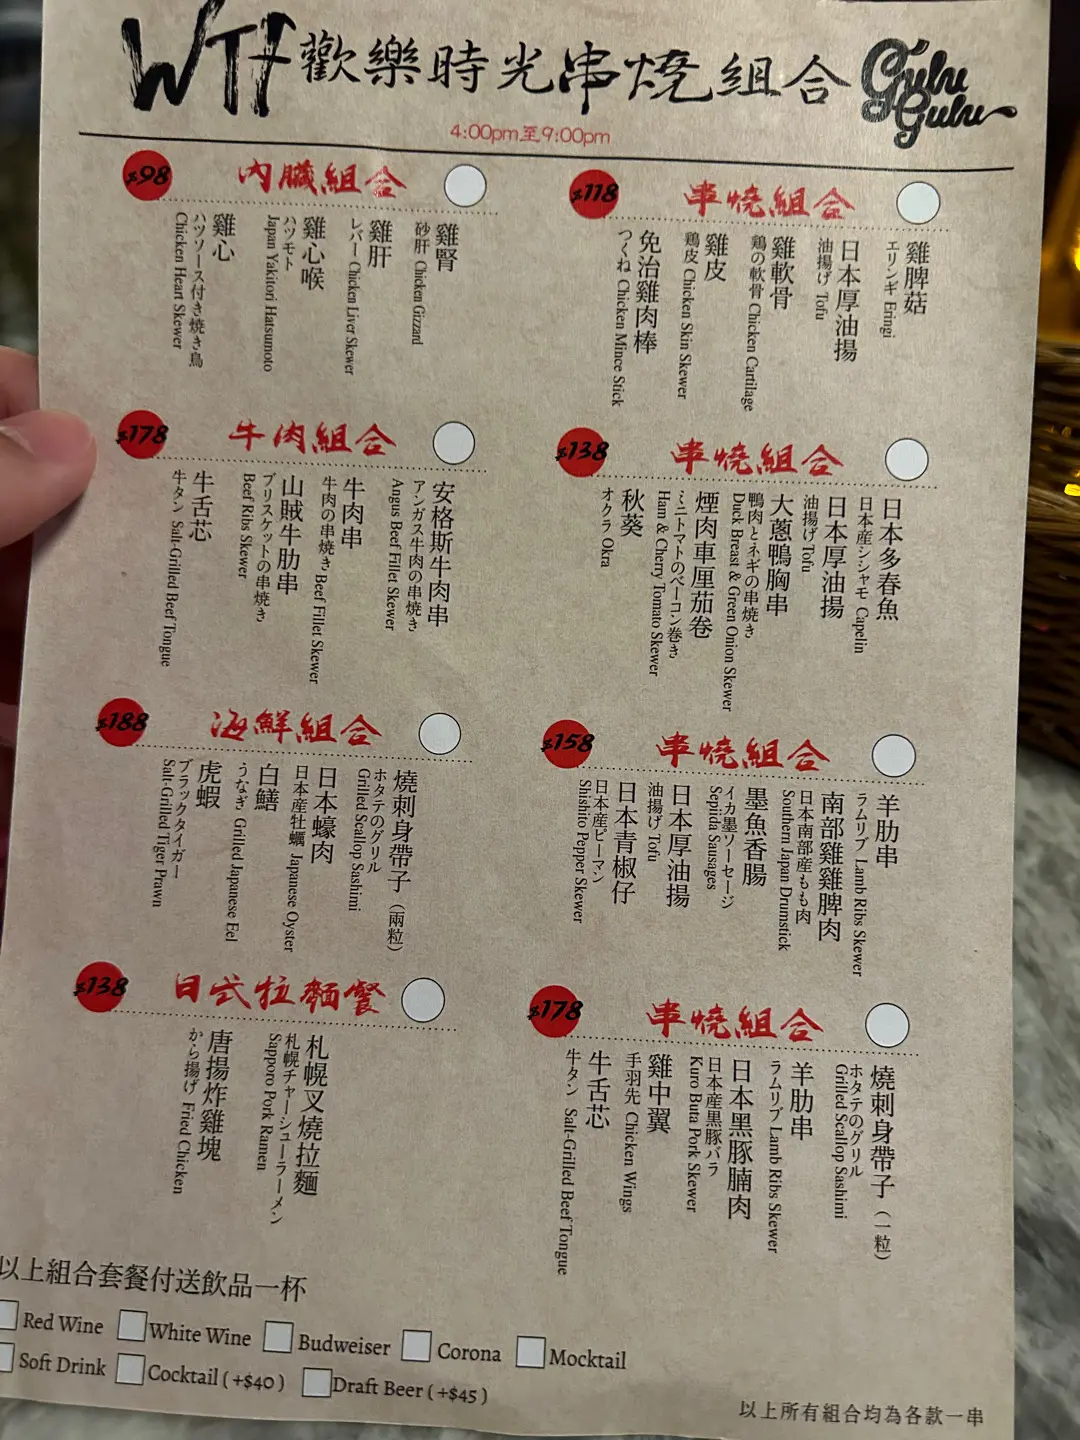 WTF歡樂時光串燒組合 Gulu Gulu
4:00pm至9:00pm
$98 內臟組合
雞腎
砂肝 Chicken Gizzard
雞肝
レバー Chicken Liver Skewer
雞心喉
ハツモト
Japan Yakitori Hatsumoto
雞心
ハツソース付き焼き鳥
Chicken Heart Skewer
$118 串燒組合
雞脾菇
エリンギ Eringi
日本厚油揚
油揚げ Tofu
雞軟骨
鶏の軟骨 Chicken Cartilage
雞皮
鶏皮 Chicken Skin Skewer
免治雞肉棒
つくね Chicken Mince Stick
$178 牛肉組合
安格斯牛肉串
アンガス牛肉の串焼き
Angus Beef Fillet Skewer
牛肉串
牛肉の串焼き Beef Fillet Skewer
山賊牛肋串
ブリスケットの串焼き
Beef Ribs Skewer
牛舌芯
牛タン Salt-Grilled Beef Tongue
$138 串燒組合
日本多春魚
日本産シシャモ Capelin
日本厚油揚
油揚げ Tofu
大蔥鴨胸串
鴨肉とネギの串焼き
Duck Breast & Green Onion Skewer
煙肉車厘茄卷
ミニトマトのベーコン巻き
Ham & Cherry Tomato Skewer
秋葵
オクラ Okra
$188 海鮮組合
燒刺身帶子（兩粒）
ホタテのグリル
Grilled Scallop Sashimi
日本蠔肉
日本産牡蠣 Japanese Oyster
白鱔
うなぎ Grilled Japanese Eel
虎蝦
ブラックタイガー
Salt-Grilled Tiger Prawn
$158 串燒組合
羊肋串
ラムリブ Lamb Ribs Skewer
南部雞雞脾肉
日本南部産もも肉
Southern Japan Drumstick
墨魚香腸
イカ墨ソーセージ
Sepiida Sausages
日本厚油揚
油揚げ Tofu
日本青椒仔
日本産ピーマン
Shishito Pepper Skewer
$138 日式拉麵餐
札幌叉燒拉麵
札幌チャーシューラーメン
Sapporo Pork Ramen
唐揚炸雞塊
から揚げ Fried Chicken
$178 串燒組合
燒刺身帶子（一粒）
ホタテのグリル
Grilled Scallop Sashimi
羊肋串
ラムリブ Lamb Ribs Skewer
日本黑豚腩肉
日本産黒豚バラ
Kuro Buta Pork Skewer
雞中翼
手羽先 Chicken Wings
牛舌芯
牛タン Salt-Grilled Beef Tongue
以上組合套餐付送飲品一杯
Red Wine White Wine Budweiser Corona Mocktail
Soft Drink Cocktail (+$40) Draft Beer (+$45)
以上所有組合均為各款一串